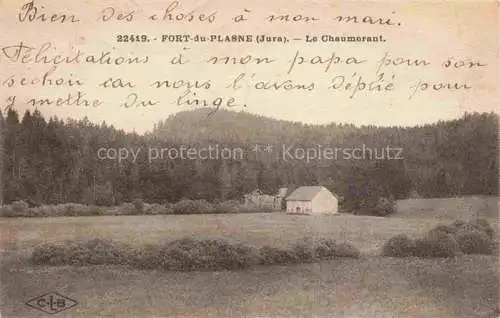 Bien des choses à mon mari.
22419. - FORT-du-PLASNE (Jura). — Le Chaumorant.
Félicitations à mon papa pour son
sechoir car nous l'avons déplié pour
y mettre du linge.
copyright protection ** Kopierschutz
CLB